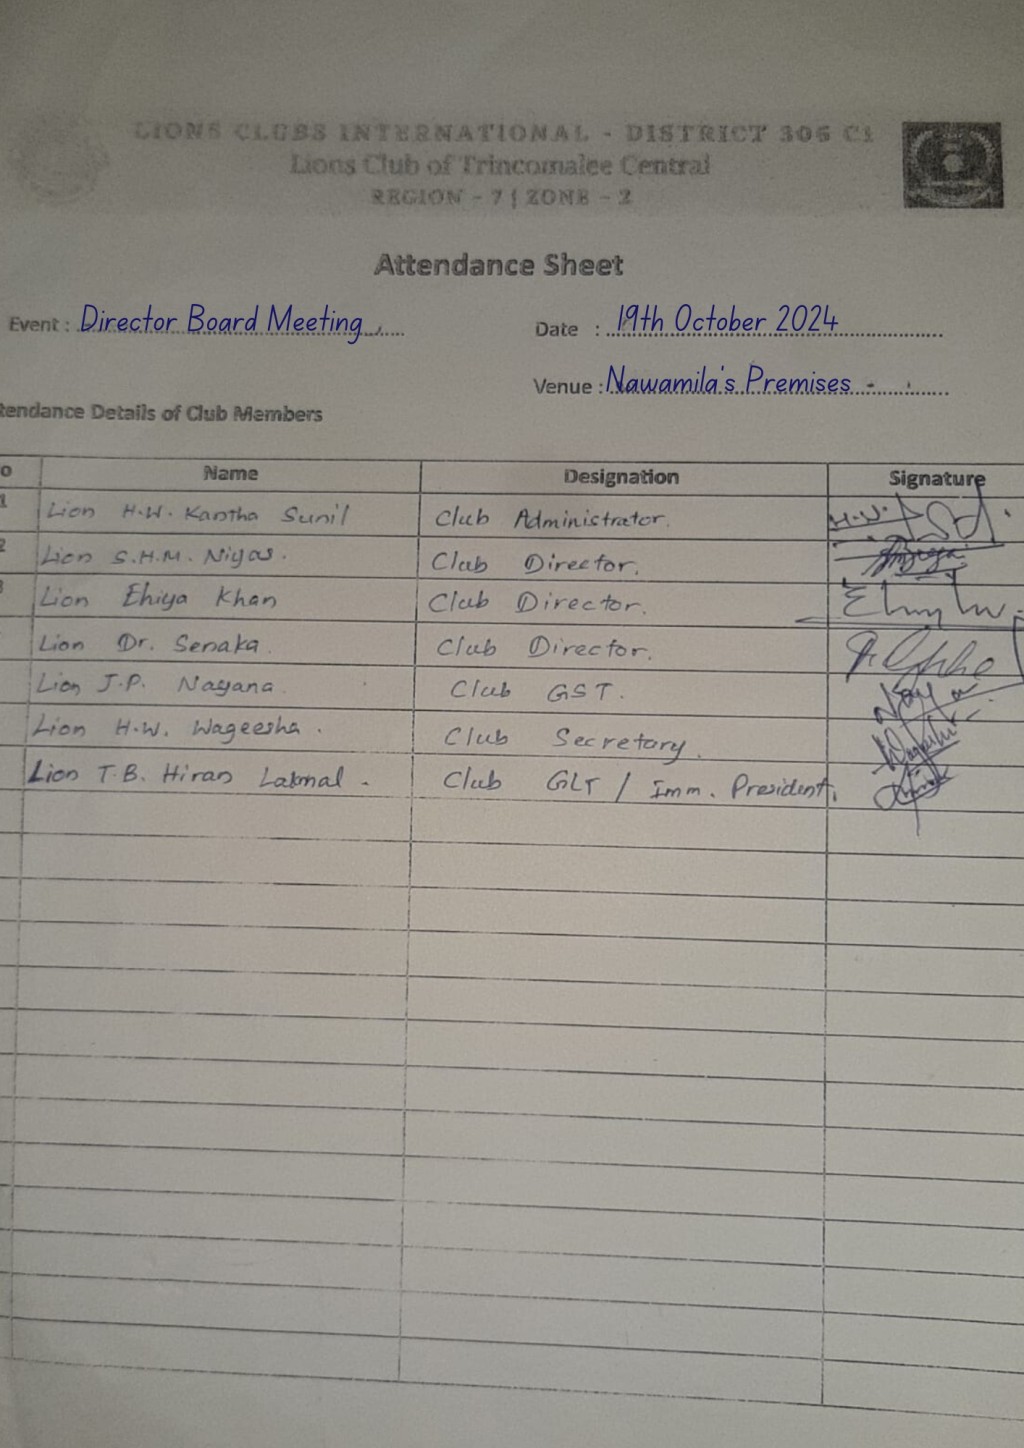 LIONS CLUBS INTERNATIONAL - DISTRICT 306 C1
Lions Club of Trincomalee Central
REGION - 7 | ZONE - 2
Attendance Sheet
Event : Director Board Meeting
Date : 19th October 2024
Venue : Nawamila's Premises
tendance Details of Club Members
o Name Designation Signature
1 Lion H.W. Kantha Sunil Club Administrator.
2 Lion S.H.M. Niyas. Club Director.
3 Lion Ehiya Khan Club Director.
Lion Dr. Senaka. Club Director.
Lion J.P. Nayana. Club GST.
Lion H.W. Wageesha. Club Secretary.
Lion T.B. Hiran Lakmal. Club GLT / Imm. President.